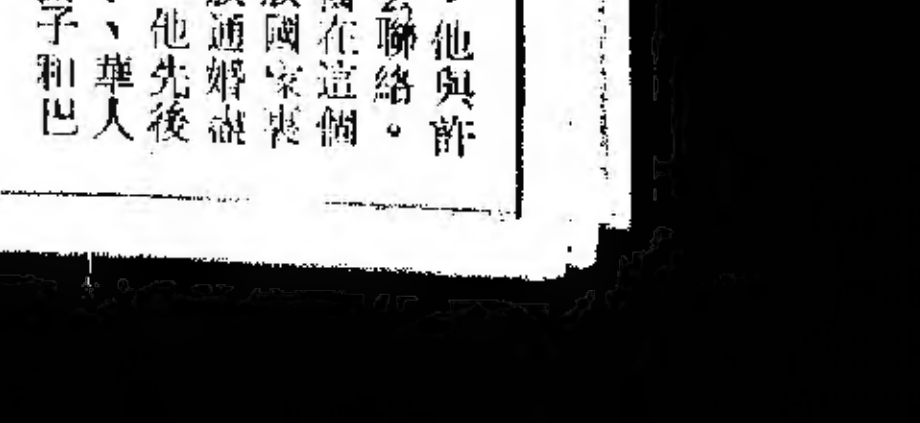 他與許
聯絡。
在這個
國家喪
通婚
他先後
、華人
子和巴